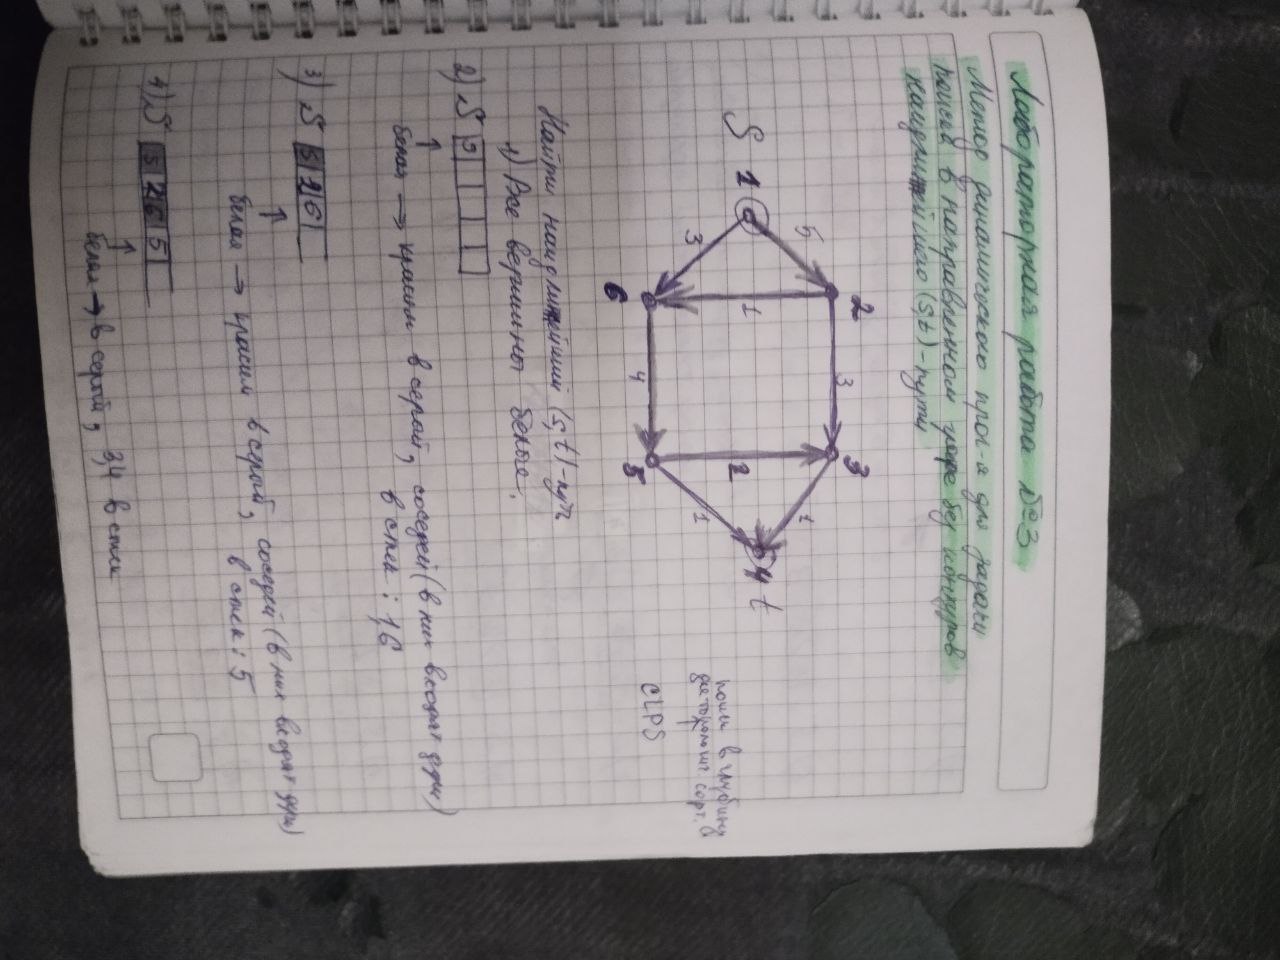 Лабораторная работа №3
Метод динамического прог-я для задачи
поиска в направленном графе без контуров
наидлиннейшего (s,t)-пути
2
3
3
5
1
S 1
1
2
4 t
3
1
4
6
5
поиск в глубину
для топологич. сорт.
CLPS
Найти наидлиннейший (s,t)-путь
1) Все вершины белые.
2) S
белая → красим в серый, соседей (в них входят дуги)
в стек: 1,6
3) S 5 2 6
белая → красим в серый, соседей (в них входят дуги)
в стек: 5
4) S 5 2 6 5
белая → в серый, 3,4 в стек